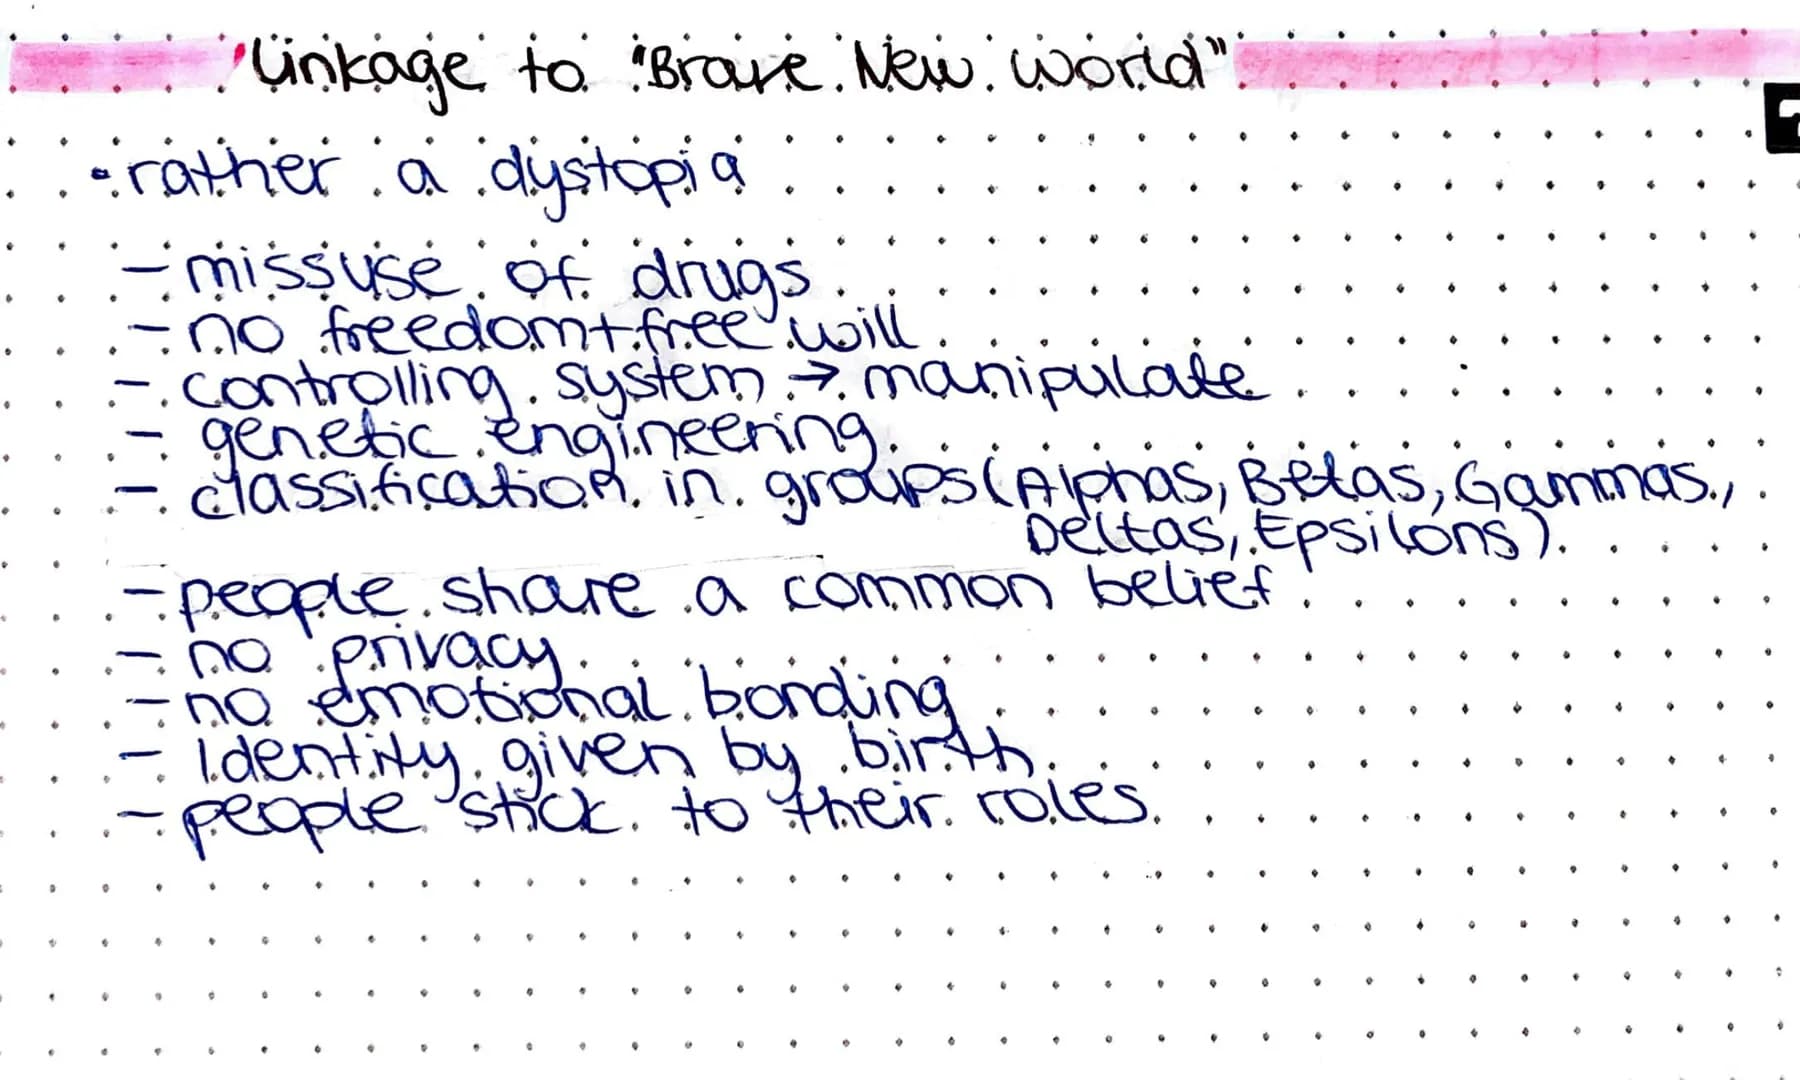 Linkage to "Brave New World"
• rather a dystopia
- missuse of drugs
- no freedom + free will
- controlling system → manipulate
- genetic engineering
- classification in groups (Alphas, Betas, Gammas,
Deltas, Epsilons)
- people share a common belief
- no privacy
- no emotional bonding
- Identity given by birth
- people stick to their roles